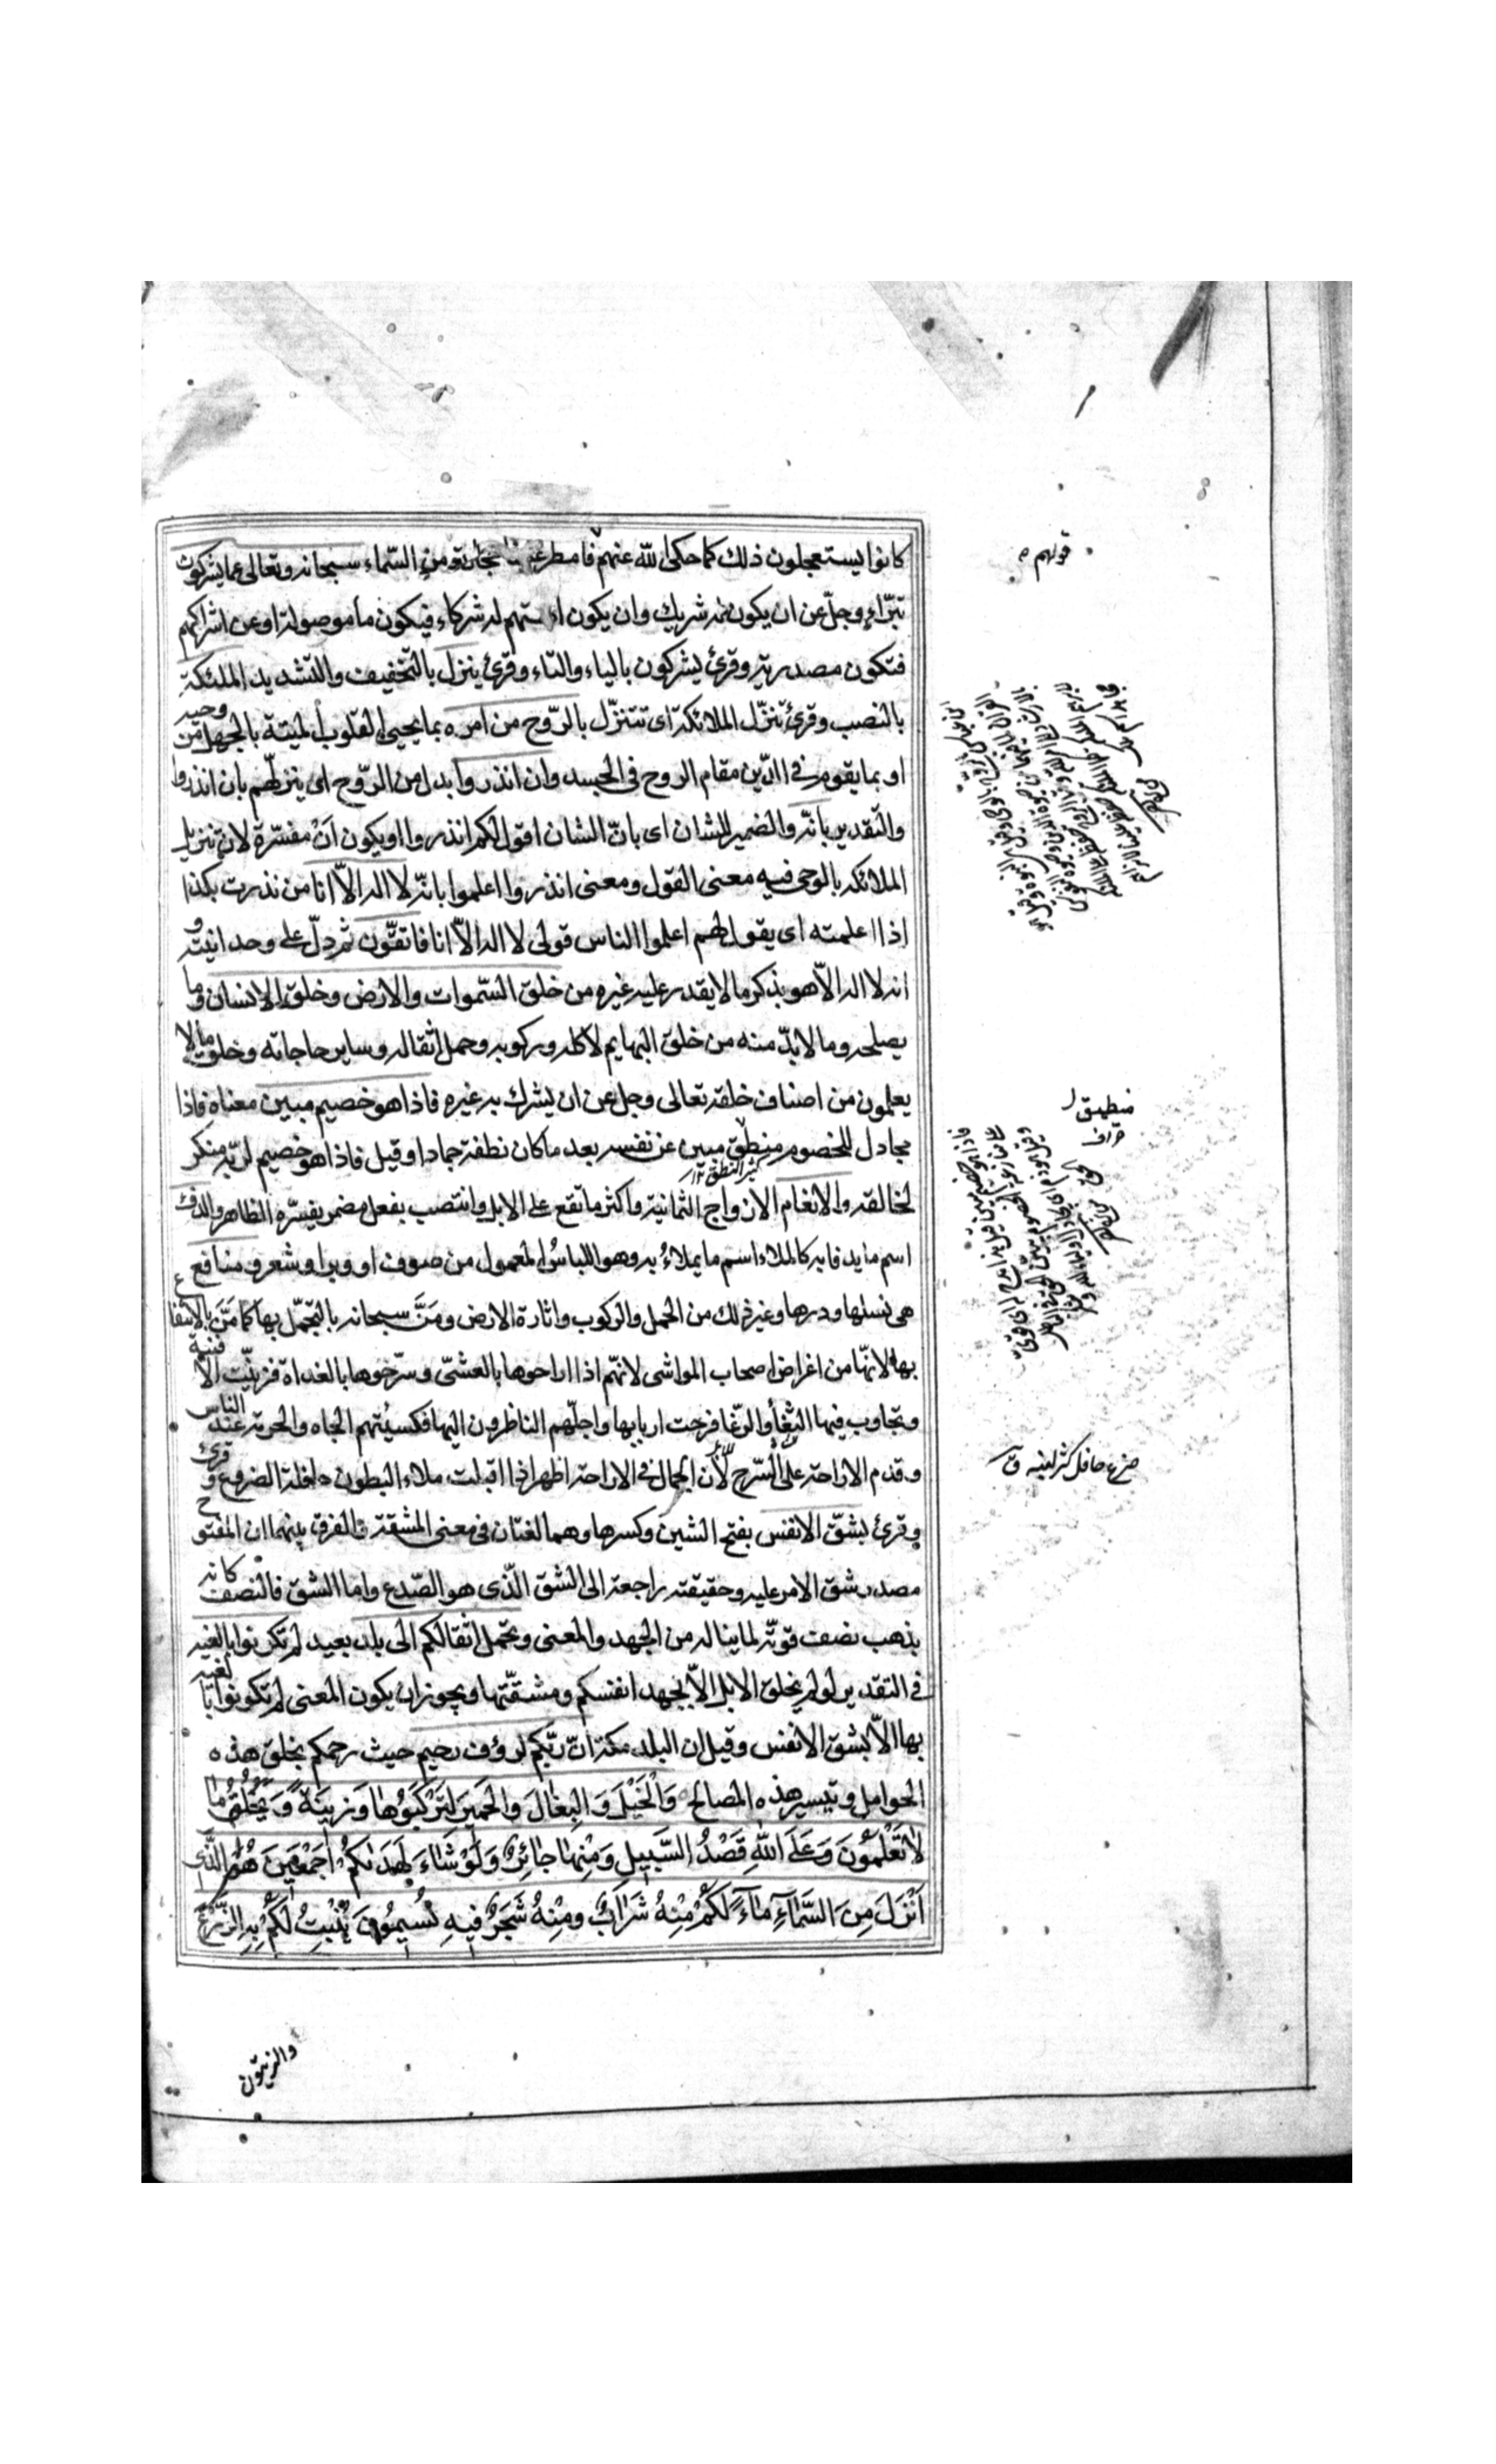 كانوا يستعجلون ذلك كما حكى الله عنهم فامطر علينا حجارة من السّماء سبحانه وتعالى عما يشركون
تبرّاء وجلّ عن ان يكون له شريك وان يكون الهتهم له شركاء فيكون ما موصولة او عن اشراكهم
فتكون مصدرية وقرئ يشركون بالياء والتاء وقرئ ينزل بالتخفيف والتشديد الملئكة
بالنصب وقرئ تنزّل الملائكة اى تتنزّل بالرّوح من امره بما يحيى القلوب الميتة بالجهل من وحيه
او بما يقوم فى الدّين مقام الروح فى الجسد وان انذروا بدل من الرّوح اى ينزلهم بان انذروا
والتقدير بانّه والضمير للشان اى بانّ الشان اقول لكم انذروا او يكون اَنْ مفسّرة لانّ تنزيل
الملائكه بالوحى فيه معنى القول ومعنى انذروا اعلموا بانّه لا اله الاّ انا من نذرت بكذا
اذا اعلمته اى يقول لهم اعلموا الناس قولى لا اله الاّ انا فاتقون ثم دلّ على وحدانيته و
انه لا اله الاّ هو بذكر ما لا يقدر عليه غيره من خلق السّموات والارض وخلق الانسان وما
يصلحه وما لا بدّ منه من خلق البهايم لاكله وركوبه وحمل اثقاله وساير حاجاته وخلق ما لا
يعلمون من اصناف خلقه تعالى وجل عن ان يشرك به غيره فاذا هو خصيم مبين معناه فاذا
مجادل للخصوم منطيق مبين عن نفسه بعد ما كان نطفة جمادا وقيل فاذا هو خصيم لربّه منكر
كثير النطق
لخالقه والانعام الازواج الثمانية واكثر ما تقع على الابل وانتصب بفعل مضمر يفسّره الظاهر والدفء
اسم ما يدفا به كالملاء اسم ما يملاءُ به وهو اللباسُ المعمول من صوف او وبر او شعر ومنافع
هى نسلها ودرها وغير ذلك من الحمل والركوب واثارة الارض ومَنَّ سبحانه بالتجمّل بها كما مَنَّ بالانتفاع
بها لانهّا من اغراض اصحاب المواشى لانهّم اذا اراحوها بالعشىّ وسرّحوها بالغداة فزيّنت الافنية
وتجاوب فيها الثغاء والرّغا فرحت اربابها واجلّهم الناظرون اليها فكسبتهم الجاه والحرمة عند الناس
وقدم الاراحة على السّرح لأن الجمال فى الاراحة اظهر اذا اقبلت ملاء البطون حافلة الضروع و قرئ
وقرئ بشقّ الانفس بفتح الشين وكسرها وهما لغتان فى معنى المشقة والفرق بينهما ان المفتوح
مصدر شق الامر عليه وحقيقته راجعة الى الشق الّذى هو الصّدع واما الشق فالنصف كانه
يذهب نصف قوتّه لما يناله من الجهد والمعنى وتحمل اثقالكم الى بلد بعيد لم تكونوا بالغيه
فى التقدير لو لم يخلق الابل الاّ بجهد انفسكم ومشقّتها ويجوز ان يكون المعنى لم تكونوا بالغيه
بها الاّ بشق الانفس وقيل ان البلد مكة انّ ربّكم لرؤف رحيم حيث رحمكم بخلق هذه
الحوامل وتيسير هذه المصالح وَالْخَيْلَ وَالْبِغالَ وَالْحَميرَ لِتَرْكَبُوها وَزينَةً وَيَخْلُقُ ما
لا تَعْلَمُونَ وَعَلَى اللّٰهِ قَصْدُ السَّبيلِ وَمِنْها جائِرٌ وَلَوْ شاءَ لَهَدٰيكُمْ اَجْمَعينَ هُوَ الَّذى
اَنْزَلَ مِنَ السَّماءِ ماءً لَكُمْ مِنْهُ شَرابٌ ومِنْهُ شَجَرٌ فيهِ تُسيمُونَ يُنْبِتُ لَكُمْ بِهِ الزَّرْعَ
والزيتون
قولهم
منطيق
ضرع حافل كثير لبنه ق